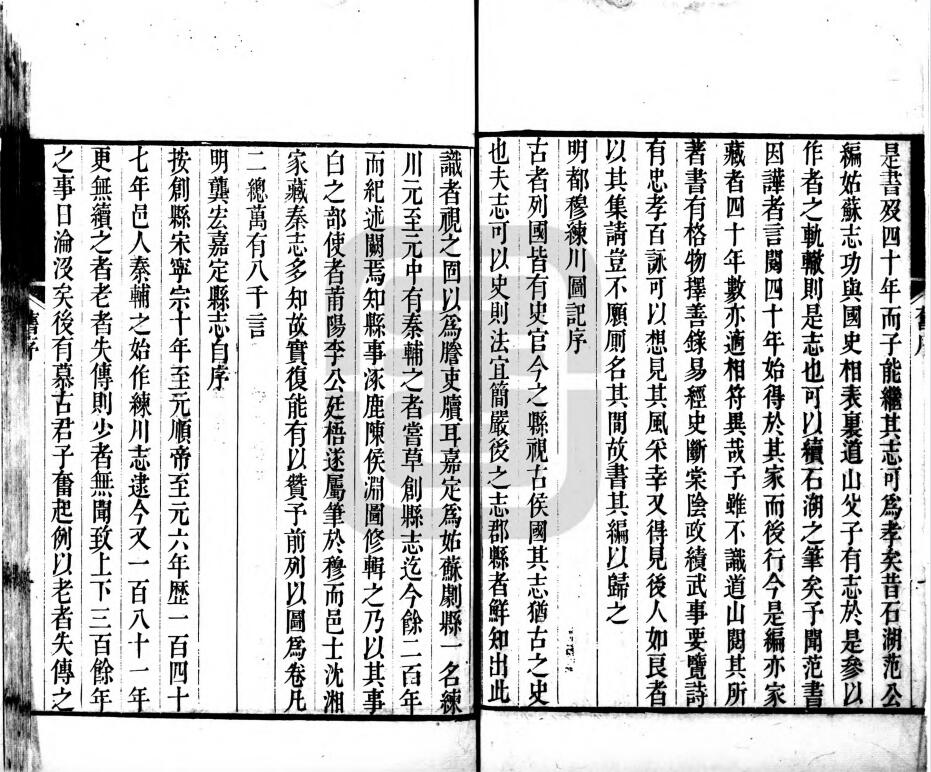 是書歿四十年而子能繼其志可爲孝矣昔石湖范公
編姑蘇志功與國史相表裏道山父子有志於是參以
作者之軌轍則是志也可以續石湖之筆矣予聞范書
因譁者言閱四十年始得於其家而後行今是編亦家
藏者四十年數亦適相符異哉予雖不識道山閱其所
著書有格物擇善錄易經史斷棠陰政績武事要覽詩
有忠孝百詠可以想見其風采幸又得見後人如良者
以其集請豈不願厠名其間故書其編以歸之
明都穆練川圖記序
古者列國皆有史官今之縣視古侯國其志猶古之史
也夫志可以史則法宜簡嚴後之志郡縣者鮮知出此
舊序
識者視之固以爲謄吏牘耳嘉定爲姑蘇劇縣一名練
川元至元中有秦輔之者嘗草創縣志迄今餘二百年
而紀述闕焉知縣事涿鹿陳侯淵圖修輯之乃以其事
白之部使者莆陽李公廷梧遂屬筆於穆而邑士沈湘
家藏秦志多知故實復能有以贊予前列以圖爲卷凡
二總萬有八千言
明龔宏嘉定縣志自序
按創縣宋寧宗十年至元順帝至元六年歷一百四十
七年邑人秦輔之始作練川志逮今又一百八十一年
更無續之者老者失傳則少者無聞致上下三百餘年
之事日淪沒矣後有慕古君子奮起例以老者失傳之
舊序